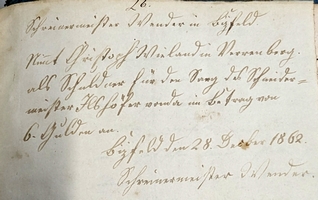 26.
Schreinermeister Wender in Bitzfeld
Nimt Christoph Wieland in Verrenberg.
als Schuldner für den Sarg des Schneider-
meister Ilshöfer von da in Betrag von
6. Gulden an.
Bitzfeld den 28. Decber 1862.
Schreinermeister Wender.